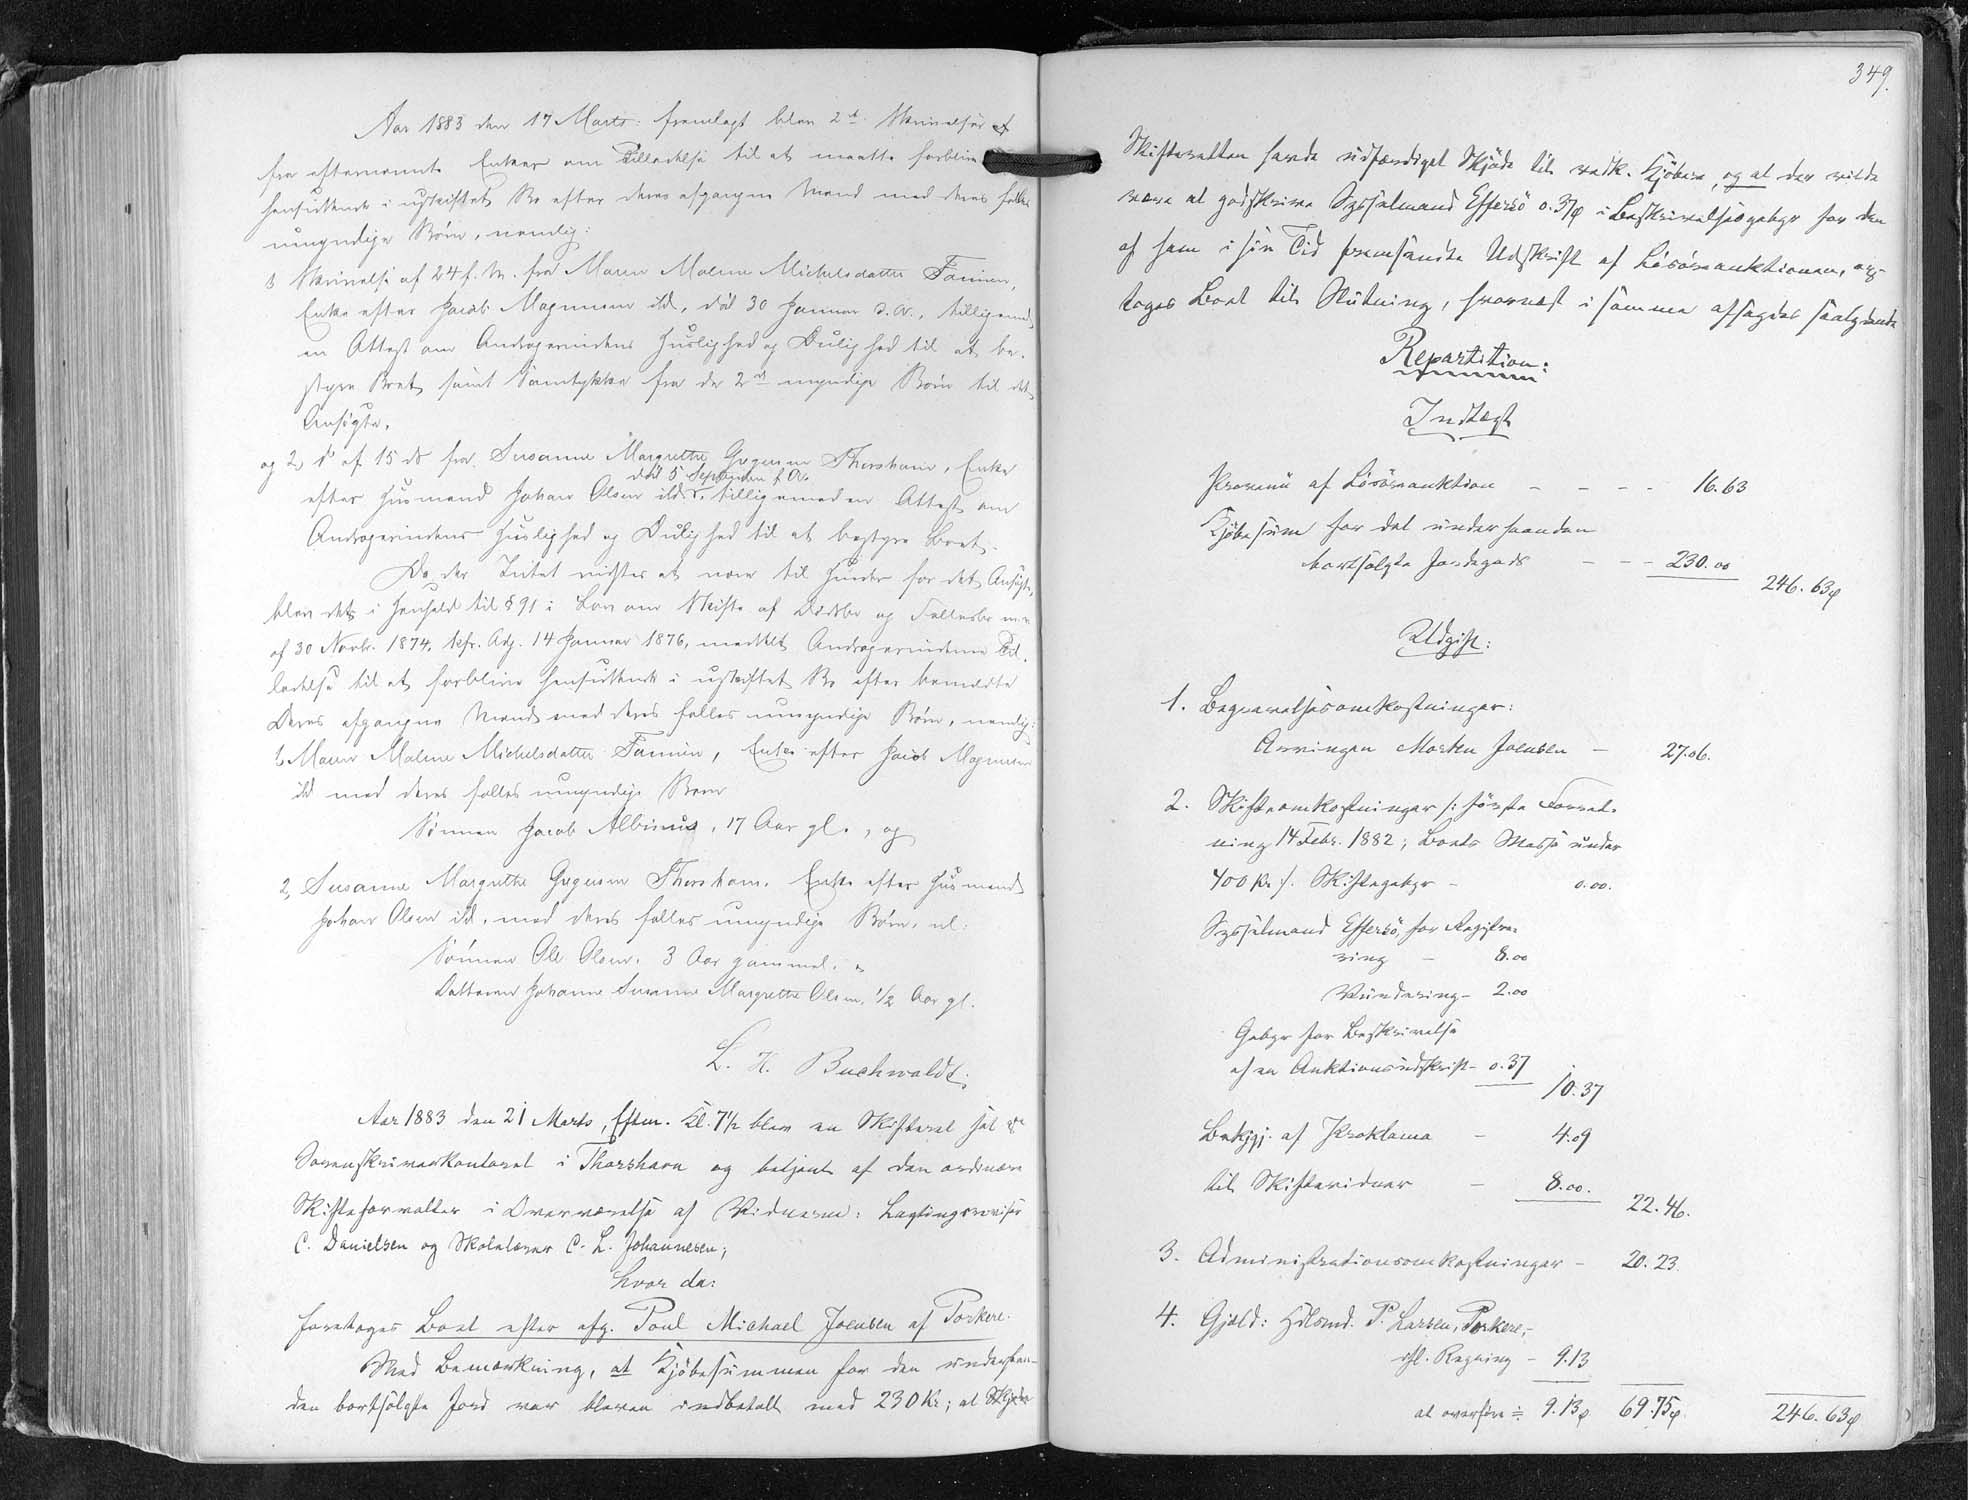 Aar 1883 den 17 Marts: fremlagt blev 2de Skrivelser
fra efternævnte Enker om Tilladelse til at maatte forblive
hensiddende i uskiftet Bo efter deres afgangne Mænd med deres fælles
umyndige Børn, nemlig:
Skrivelse af 24 f. M. fra Maren Malene Michelsdatter Famien,
Enke efter Jacob Magnussen ibd., død 30 Januar d. A., tilligemed
en Attest om Andragerindens Huslighed og Duelighed til at be-
styre Boet, samt Samtykke fra de 2de myndige Børn til det
Ansøgte,
og 2, do af 15 ds fra Susanne Margrethe Gregersen Thorshavn, Enke
død 5 September f. A.
efter Husmand Johan Olsen ibds. tilligemed en Attest om
Andragerindens Huslighed og Duelighed til at bestyre Boet.
Da der Intet vidstes at være til Hinder for det Ansøgte,
blev det i Henhold til § 91 i Lov om Skifte af Dødsbo og Fællesbo m. v.
af 30 Novbr. 1874, kfr. Anj. 14 Januar 1876, meddelt Andragerinderne Til-
ladelse til at forblive hensiddende i uskiftet Bo efter bemeldte
Deres afgangne Mænd med deres fælles umyndige Børn, nemlig:
1, Maren Malene Michelsdatter Famien, Enke efter Jacob Magnussen
ibd med deres fælles umyndige Barn
Sønnen Jacob Albinus, 17 Aar gl., og
2, Susanne Margrethe Gregersen Thorshavn. Enke efter Husmand
Johan Olsen ibd. med deres fælles umyndige Børn, nl:
Sønnen Ole Olsen. 3 Aar gammel. og
Datteren Johanne Susanne Margrethe Olsen, 1/2 Aar gl.
L. H. Buchwaldt.
Aar 1883 den 21 Marts, Eftm. Kl. 7 1/2 blev en Skifteret sat paa
Sorenskriverkontoret i Thorshavn og betjent af den ordinære
Skifteforvalter i Overværelse af Vidnerne: Lagtingsrevisor
C. Danielsen og Skolelærer C. L. Johannesen;
hvor da:
foretoges Boet efter afg. Poul Michael Joensen af Porkere.
Med Bemærkning, at Kjøbesummen for den underhaan-
den bortsolgte Jord var bleven indbetalt med 230 Kr; at
349.
Skifteretten havde udfærdiget Skjøde til vedk. Kjøbere, og at der vilde
være at godskrive Sysselmand Effersö 0.37ø i Beskrivelsesgebyr for den
af ham i sin Tid fremsendte Udskrift af Løsøreauktionen, op-
toges Boet til Slutning, hvornæst i samme afsagdes saalydende
Repartition:
Indtægt
Provenü af Løsøreauktion - - - - 16.63
Kjøbesum for det underhaanden
bortsolgte Jordegods - - - 230.00
246.63ø
Udgift:
1. Begravelsesomkostninger:
Arvingen Morten Joensen - 27.06.
2. Skifteomkostninger /: første Forret-
ning 14 Febr. 1882; Boets Masse under
400 Kr :/. Skiftegebyr - 0.00.
Sysselmand Effersö, for Registre-
ring - 8.00
Vurdering - 2.00
Gebyr for Beskrivelse
af en Auktionsudskrift - 0.37
10.37
Bekjgj. af Proklama - 4.09
til Skiftevidner - 8.00.
22.46.
3. Administrationsomkostninger - 20.23.
4. Gjæld: Hdlsmd. P. Larsen, Porkere,-
ifl. Regning - 9.13
at overføre ÷ 9.13ø 69.75ø 246.63ø